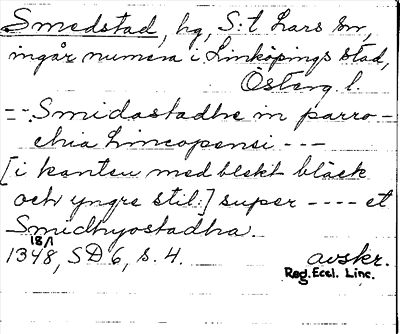 Smedstad, hg, S:t Lars sn,
ingår numera i Linköpings stad,
Österg. l.
-- Smidastadhe in parro-
chia Lincopensi ---
[i kanten med blekt bläck
och yngre stil:] super ---- et
Smidhyostadha.
18/1
1348, SD 6, s. 4. avskr.
Reg. Eccl. Linc.